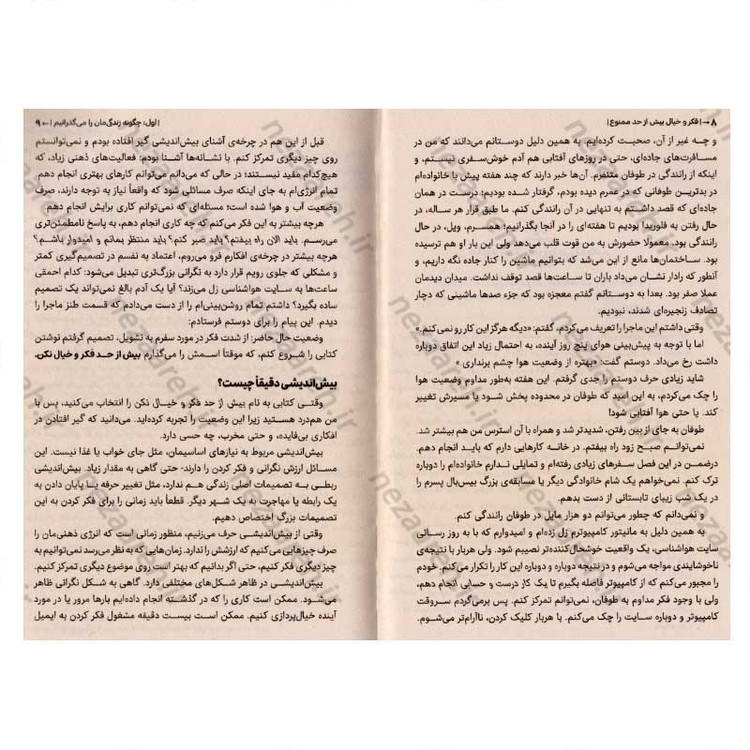 ۸ → | فکر و خیال بیش از حد ممنوع |
و چه غیر از آن، صحبت کرده‌ایم. به همین دلیل دوستانم می‌دانند که من در
مسافرت‌های جاده‌ای، حتی در روزهای آفتابی هم آدم خوش‌سفری نیستم، و
اینکه از رانندگی در طوفان متنفرم. آن‌ها خبر دارند که چند هفته پیش با خانواده‌ام
در بدترین طوفانی که در عمرم دیده بودم، گرفتار شده بودیم؛ درست در همان
جاده‌ای که قصد داشتم به تنهایی در آن رانندگی کنم. ما طبق قرار هر ساله، در
حال رفتن به فلوریدا بودیم تا هفته‌ای را در آنجا بگذرانیم؛ همسرم، ویل، در حال
رانندگی بود، معمولا حضورش به من قوت قلب می‌دهد ولی این بار او هم ترسیده
بود. ساختمان‌ها مانع از این می‌شد که بتوانیم ماشین را کنار جاده نگه داریم، و
آنطور که رادار نشان می‌داد باران تا ساعت‌ها قصد توقف نداشت. میدان دیدمان
عملا صفر بود. بعدا به دوستانم گفتم معجزه بود که جزء صدها ماشینی که دچار
تصادف زنجیره‌ای شدند، نبودیم.
وقتی داشتم این ماجرا را تعریف می‌کردم، گفتم: «دیگه هرگز این کار رو نمی کنم.»
اما با توجه به پیش‌بینی هوای پنج روز آینده، به احتمال زیاد این اتفاق دوباره
داشت رخ می‌داد. دوستم گفت: «بهتره از وضعیت هوا چشم برنداری.»
شاید زیادی حرف دوستم را جدی گرفتم. این هفته به‌طور مداوم وضعیت هوا
را چک می‌کردم، به این امید که طوفان در محدوده پخش شود یا مسیرش تغییر
کند. یا حتی هوا آفتابی شود!
طوفان به جای از بین رفتن، شدیدتر شد و همراه با آن استرس من هم بیشتر شد.
نمی‌توانم صبح زود راه بیفتم. در خانه کارهایی دارم که باید انجام دهم.
درضمن من در این فصل سفرهای زیادی رفته‌ام و تمایلی ندارم خانواده‌ام را دوباره
ترک کنم. نمی‌خواهم یک شام خانوادگی دیگر یا مسابقه‌ی بزرگ بیس‌بال پسرم را
در یک شب زیبای تابستانی از دست بدهم.
و نمی‌دانم که چطور می‌توانم دو هزار مایل در طوفان رانندگی کنم.
به همین دلیل به مانیتور کامپیوترم زل زده‌ام و امیدوارم که با به روز رسانی
سایت هواشناسی، یک واقعیت خوشحال‌کننده‌تر نصیبم شود. ولی هربار با نتیجه‌ی
ناخوشایندی مواجه می‌شوم و در نتیجه دوباره و دوباره این کار را تکرار می‌کنم. خودم
را مجبور می‌کنم که از کامپیوتر فاصله بگیرم تا یک کار درست و حسابی انجام دهم،
ولی با وجود فکر مداوم به طوفان، نمی‌توانم تمرکز کنم. پس برمی‌گردم سروقت
کامپیوتر و دوباره سایت را چک می‌کنم. با هربار کلیک کردن، ناآرام‌تر می‌شوم.
| اول: چگونه زندگی‌مان را می‌گذرانیم | ← ۹
قبل از این هم در چرخه‌ی آشنای بیش‌اندیشی گیر افتاده بودم و نمی‌توانستم
روی چیز دیگری تمرکز کنم. با نشانه‌ها آشنا بودم: فعالیت‌های ذهنی زیاد، که
هیچ‌کدام مفید نیستند؛ در حالی که می‌دانم می‌توانم کارهای بهتری انجام دهم.
تمام انرژی‌ام به جای اینکه صرف مسائلی شود که واقعاً نیاز به توجه دارند، صرف
وضعیت آب و هوا شده است؛ مسئله‌ای که نمی‌توانم کاری برایش انجام دهم.
هرچه بیشتر به این فکر می‌کنم که چه کاری انجام دهم، به پاسخ نامطمئن‌تری
می‌رسم. باید الان راه بیفتم؟ باید صبر کنم؟ باید منتظر بمانم و امیدوار باشم؟
هرچه بیشتر در چرخه‌ی افکارم فرو می‌روم، اعتماد به نفسم در تصمیم‌گیری کمتر
و مشکلی که جلوی رویم قرار دارد به نگرانی بزرگ‌تری تبدیل می‌شود: کدام احمقی
ساعت‌ها به سایت هواشناسی زل می‌زند؟ آیا یک آدم بالغ نمی‌تواند یک تصمیم
ساده بگیرد؟ داشتم تمام روشن‌بینی‌ام را از دست می‌دادم که قسمت طنز ماجرا را
دیدم. این پیام را برای دوستم فرستادم:
وضعیت حال حاضر: از شدت فکر در مورد سفرم به تشویل، تصمیم گرفتم نوشتن
کتابی را شروع کنم، که موقتاً اسمش را می‌گذارم بیش از حد فکر و خیال نکن.
بیش‌اندیشی دقیقاً چیست؟
وقتی کتابی به نام بیش از حد فکر و خیال نکن را انتخاب می‌کنید، پس با
من هم‌درد هستید زیرا این وضعیت را تجربه کرده‌اید. می‌دانید که گیر افتادن در
افکاری بی‌فایده، و حتی مخرب، چه حسی دارد.
بیش‌اندیشی مربوط به نیازهای اساسیمان، مثل جای خواب یا غذا نیست. این
مسائل ارزش نگرانی و فکر کردن را دارند؛ حتی گاهی به مقدار زیاد. بیش‌اندیشی
ربطی به تصمیمات اصلی زندگی هم ندارد، مثل تغییر حرفه یا پایان دادن به
یک رابطه یا مهاجرت به یک شهر دیگر. قطعاً باید زمانی را برای فکر کردن به این
تصمیمات بزرگ اختصاص دهیم.
وقتی از بیش‌اندیشی حرف می‌زنیم، منظور زمانی است که انرژی ذهنی‌مان را
صرف چیزهایی می‌کنیم که ارزشش را ندارد. زمان‌هایی که به نظر می‌رسد نمی‌توانیم به
چیز دیگری فکر کنیم، حتی اگر بدانیم که بهتر است روی موضوع دیگری تمرکز کنیم.
بیش‌اندیشی در ظاهر شکل‌های مختلفی دارد. گاهی به شکل نگرانی ظاهر
می‌شود. ممکن است کاری را که در گذشته انجام داده‌ایم بارها مرور یا در مورد
آینده خیال‌پردازی کنیم. ممکن است بیست دقیقه مشغول فکر کردن به ایمیل
nezareh.ir